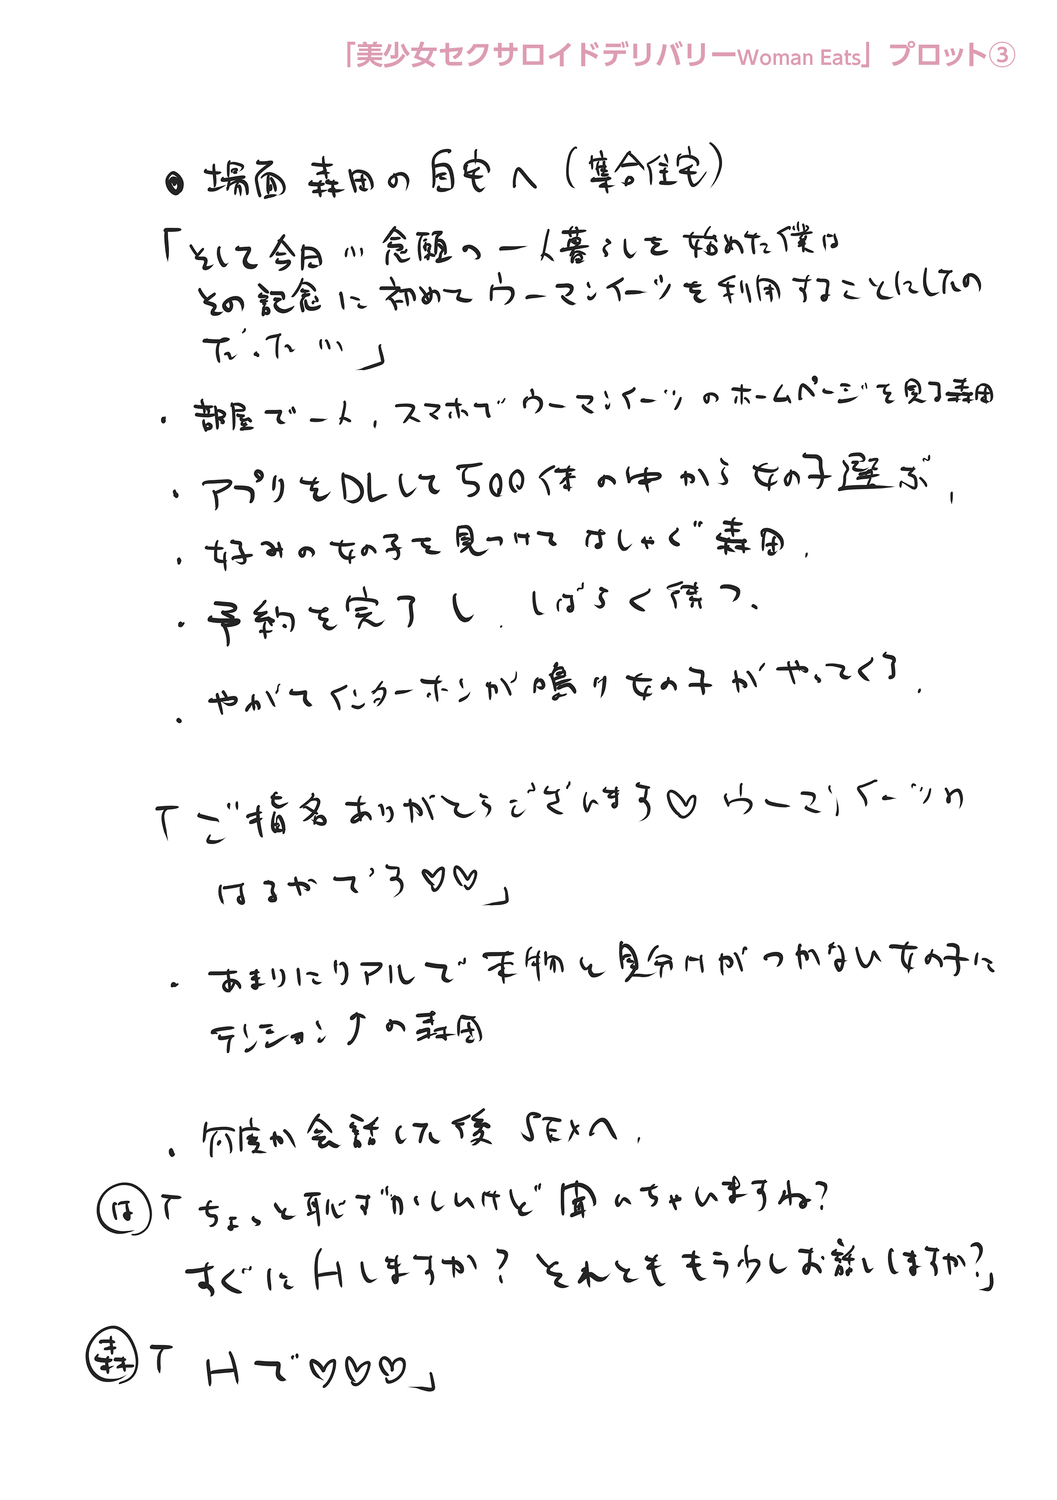 「美少女セクサロイドデリバリーWoman Eats」プロット③
● 場面 森田の自宅へ (集合住宅)
「そして今日… 念願の一人暮らしを始めた僕は
その記念に初めてウーマンイーツを利用することにしたの
だった…」
・部屋で一人、スマホでウーマンイーツのホームページを見る森田
・アプリをDLして500体の中から女の子選ぶ、
・好みの女の子を見つけてはしゃぐ森田、
・予約を完了し、しばらく待つ、
・やがてインターホンが鳴り女の子がやってくる、
「ご指名ありがとうございます♡ ウーマンイーツの
はるかです♡♡」
・あまりにリアルで本物と見分けがつかない女の子に
テンション↑の森田
・何度か会話した後SEXへ、
は「ちょっと恥ずかしいけど聞いちゃいますね?
すぐにHしますか? それとももう少しお話ししますか?」
森「Hで♡♡♡」